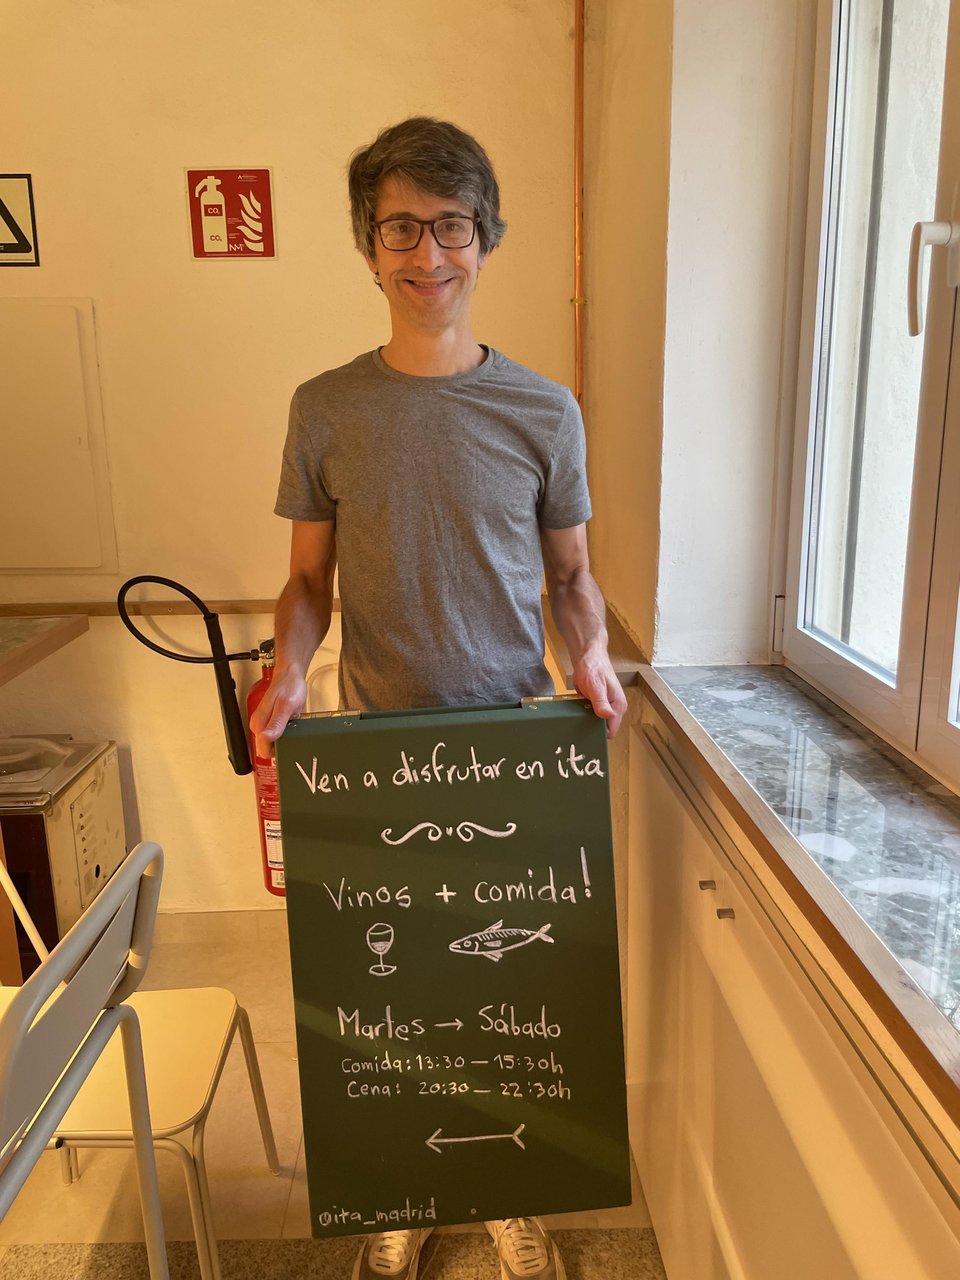 CO₂
CO₂
NMT
Ven a disfrutar en ita
Vinos + comida!
Martes → Sábado
Comida: 13:30 — 15:30h
Cena: 20:30 — 22:30h
@ita_madrid